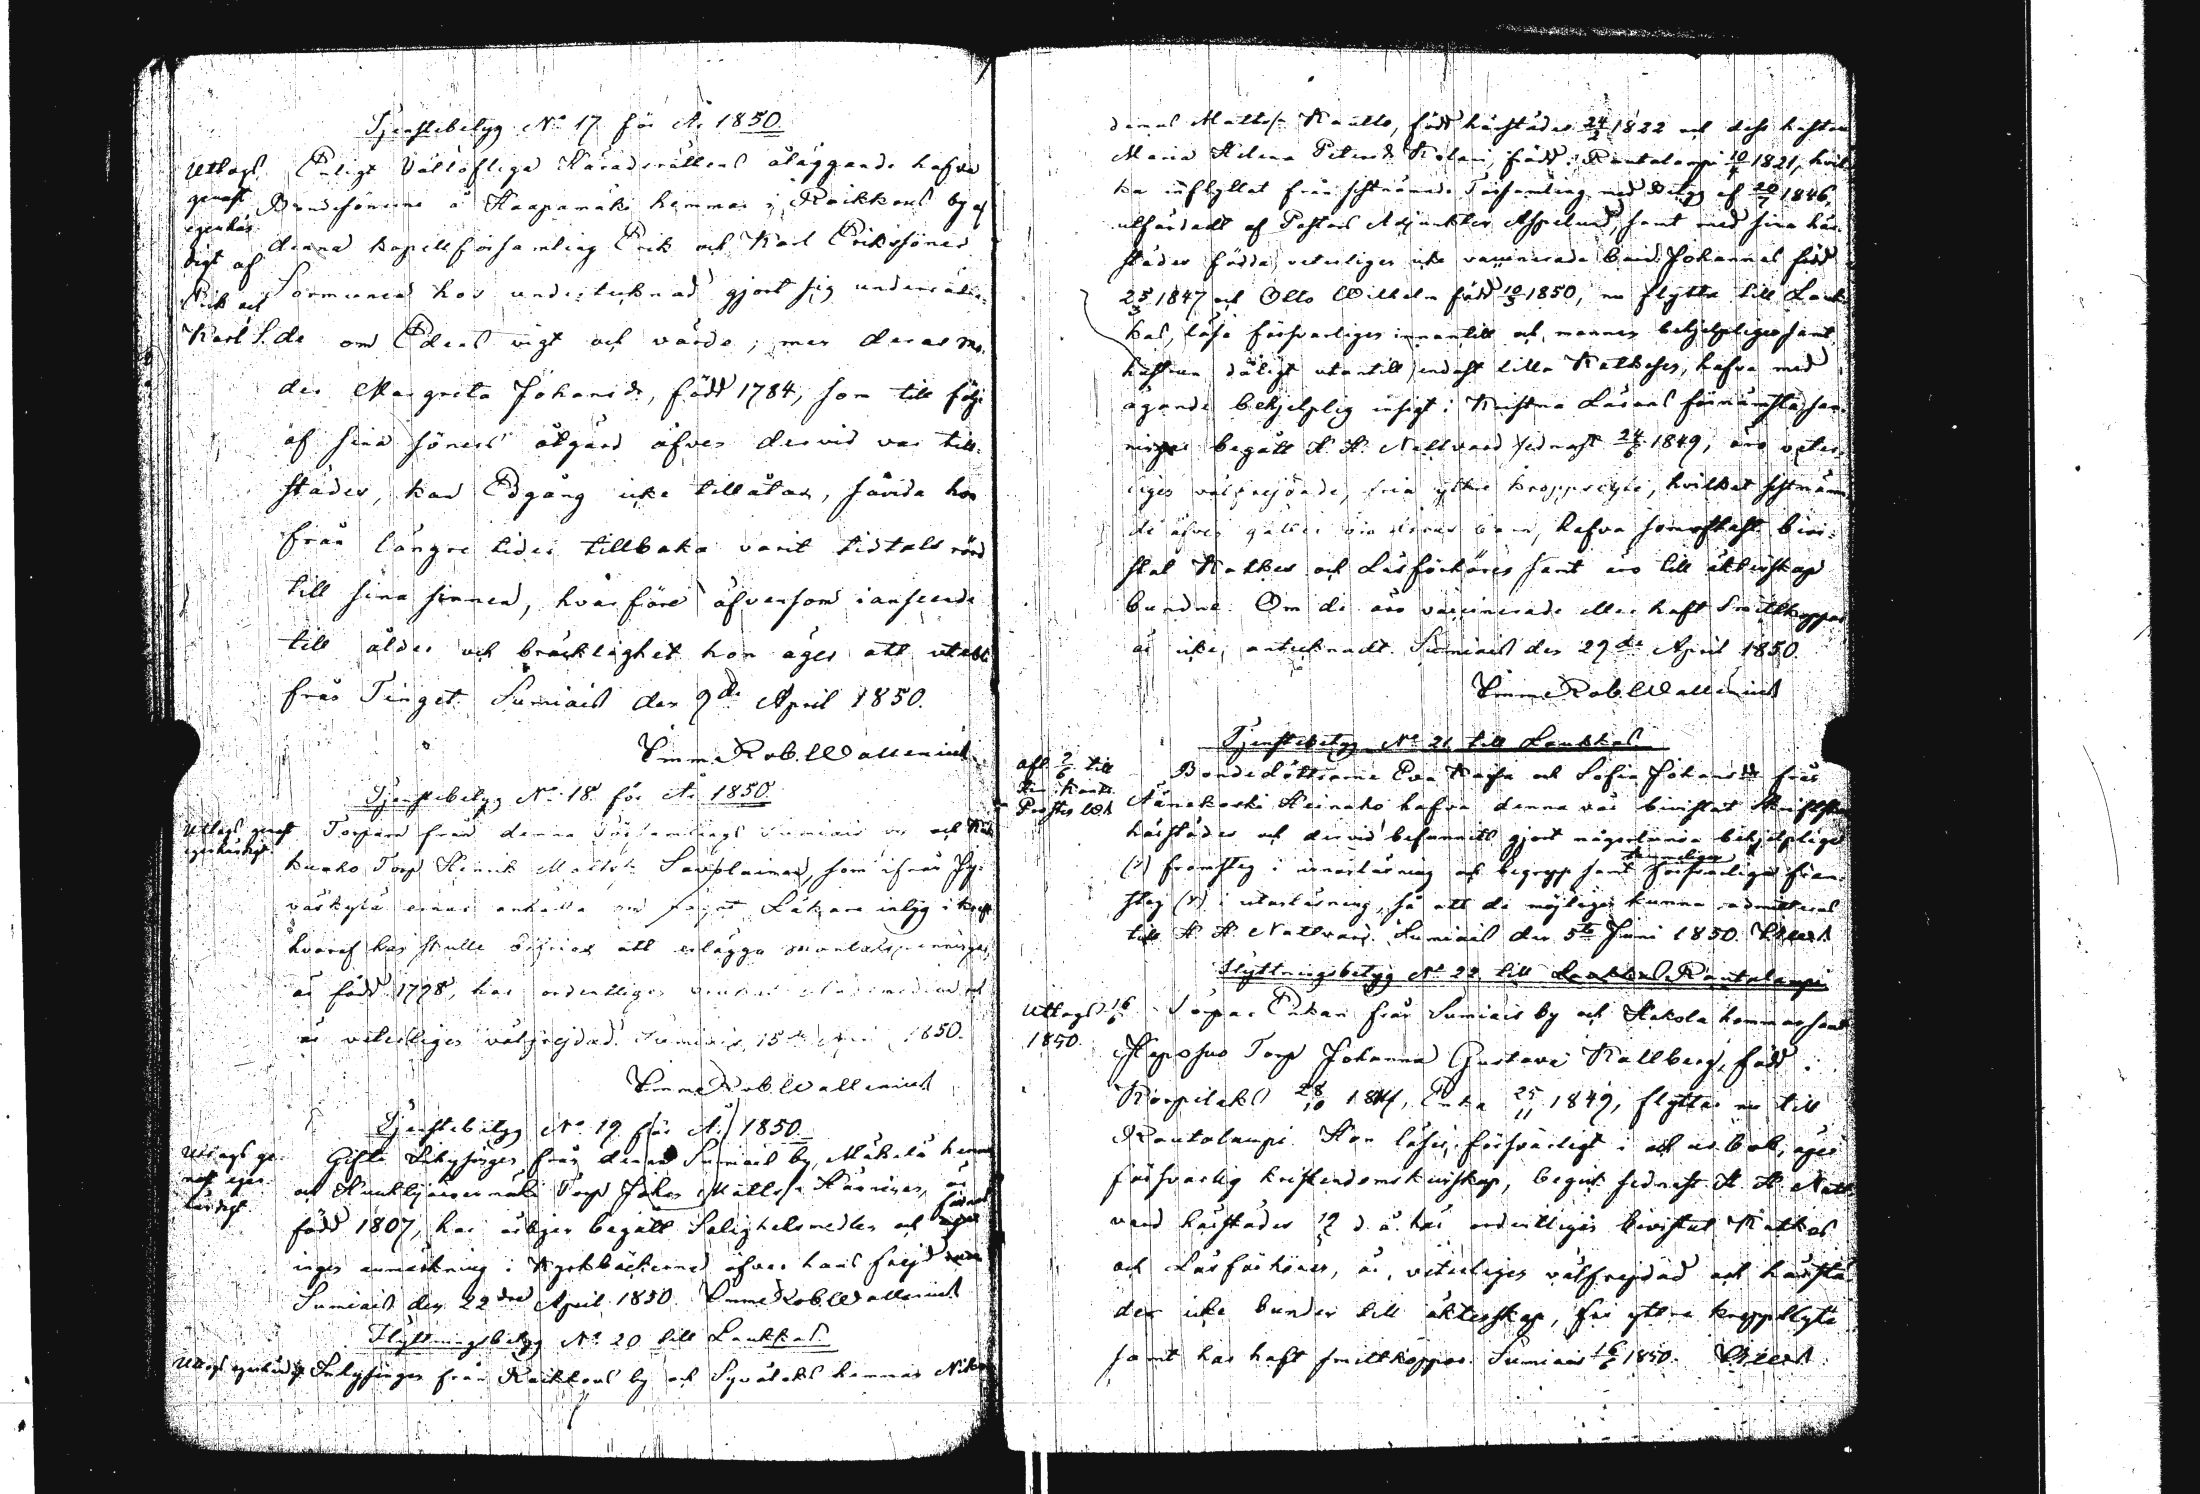 Tjenstebetyg No 17 för År 1850
Utlogs genast egenhändigt af Erik och Karl S.
Enligt Vällofliga Häradsrättens åläggande hafva
Bondesönerne å Haapamäki hemman i Räikkous by af
denna kapellförsamling Erik och Karl Erikssöner
Sormunen hos undertecknad gjort sig underrätta-
de om Edens vigt och värde; men deras mo-
der Margreta Johansdr, född 1784, som till följe
af sina söners åtgärd äfven dervid var till-
städes, kan Edgång icke tillåtas, såvida hon
från längre tider tillbaka varit tidtals rörd
till sina sinnen, hvarföre äfvensom i anseende
till ålder och bräcklighet hon äger att utebli
från Tinget. Sumiais den 9de April 1850.
Rob. Wallenius
Tjenstebetyg No 18 för År 1850
Utlogs genast egenhändigt
Torparen från denna Församlings Sumiais by och
Torp Henrik Matts Savolainen, som ifrån Jy-
väskylä Läkare intyg
hvaraf han skulle att erlägga mantalspenningar,
är född 1798, har ordentligen
är veterligen välfrejdad. Sumiais 15de April 1850.
Rob. Wallenius
Tjenstebetyg No 19 för År 1850
Utlogs genast egenhändigt
Gifte Inhysingen från denna Sumiais by, Mäkelä hemman
och Torp Johan Matts. Hänninen, är
född 1807, har årligen begått Salighetsmedlen och
ingen anmärkning i Kyrkböckerne öfver hans frejd
Sumiais den 22dra April 1850. Rob. Wallenius
Flyttningsbetyg No 20 till Laukkas
Utlogs egenhändigt
Inhysingen från Räikkous by och Syvälaks hemman
dennes Matts. Kautto, född härstädes 24/2 1822 och dess hustru
Maria Helena Petersdr Kolari, född i Rautalampi 10/4 1821, hvil-
ka inflyttat från sistnämnde Församling med Betyg af 20/7 1846,
utfärdadt af Pastors Adjunkten Aspelund, samt med sina här-
städes födda, veterligen icke vaccinerade barn Johannes född
25/3 1847 och Otto Wilhelm född 10/3 1850, nu flytta till Lauk-
kas, läsa försvarligen innantill och mannen behjelpligen samt
hustrun dåligt utantill endast lilla Katheses, hafva med
ägande behjelplig insigt i Kristna Lärans förnämsta san-
ningar begått H. H. Nattvard sednast 24/6 1849, äro veter-
ligen välfrejdade, fria yttre kroppslyte, hvilket sistnäm-
de äfven gäller om deras barn, hafva som oftast bevi-
stat Katkes och Läsförhören samt äro till äktenskap
bundne. Om de äro vaccinerade eller haft Smittkoppor
är icke antecknadt. Sumiais den 29de April 1850.
Rob. Wallenius
Tjenstebetyg No 21 till Laukkas
afl. 7/6 till Prosten
Bondedöttrarne Eva Kajsa och Sofia Johansdr från
Äänekoski Heinaho hafva denna vår bevistat Skriftskolan
härstädes och dervid befunnits gjort någorlunda behjelpliga
(?) framsteg i innanläsning och begrepp samt temmeligen försvarliga fram-
steg (?) i utanläsning, så att de möjligen kunna admitteras
till H. H. Nattvard. Sumiais den 5te Juni 1850.
Flyttningsbetyg No 22 till Laukkas Rautalampi
Utlogs 16/6 1850.
Torpar Enkan från Sumiais by och Hakola hemman samt
Torp Johanna Gustava Kallberg, född i
Korpilaks 28/10 1814, Enka 25/11 1849, flyttar nu till
Rautalampi. Hon läser försvarligt i och ur bok, äger
försvarlig kristendomskunskap, begick sednast H. H. Natt-
vard härstädes d. å. har ordentligen bevistat Katkes
och Läsförhören, är veterligen välfrejdad och härstä-
des icke bunden till äktenskap, fri yttre kroppslyte
samt har haft smittkoppor. Sumiais 16/6 1850.